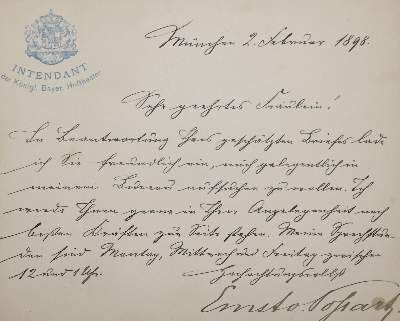 INTENDANT
der Königl. Bayer. Hoftheater
München 2. Februar 1898.
Sehr geehrtes Fräulein!
In Beantwortung Ihres geschätzten Briefes lade
ich Sie freundlich ein, mich gelegentlich in
meinem Bureau aufsuchen zu wollen. Ich
werde Ihnen gerne in Ihrer Angelegenheit nach
besten Kräften zur Seite stehen. Meine Sprechstun-
den sind Montag, Mittwoch und Freitag zwischen
12 und 1 Uhr. Hochachtungsvollst
Ernst v. Possart